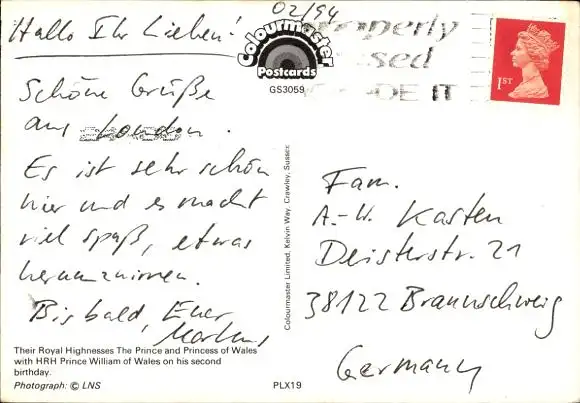 02/94
Hallo Ihr Lieben!
Schöne Grüße
aus London.
Es ist sehr schön
hier und es macht
viel spaß, etwas
herumzuirren.
Bis bald, Euer
Markus
Their Royal Highnesses The Prince and Princess of Wales
with HRH Prince William of Wales on his second
birthday.
Photograph: © LNS
PLX19
Colourmaster
Postcards
GS3059
Colourmaster Limited, Kelvin Way, Crawley, Sussex
properly
ssed
CODE IT
1ST
Fam.
A.-W. Kasten
Deisterstr. 21
38122 Braunschweig
Germany